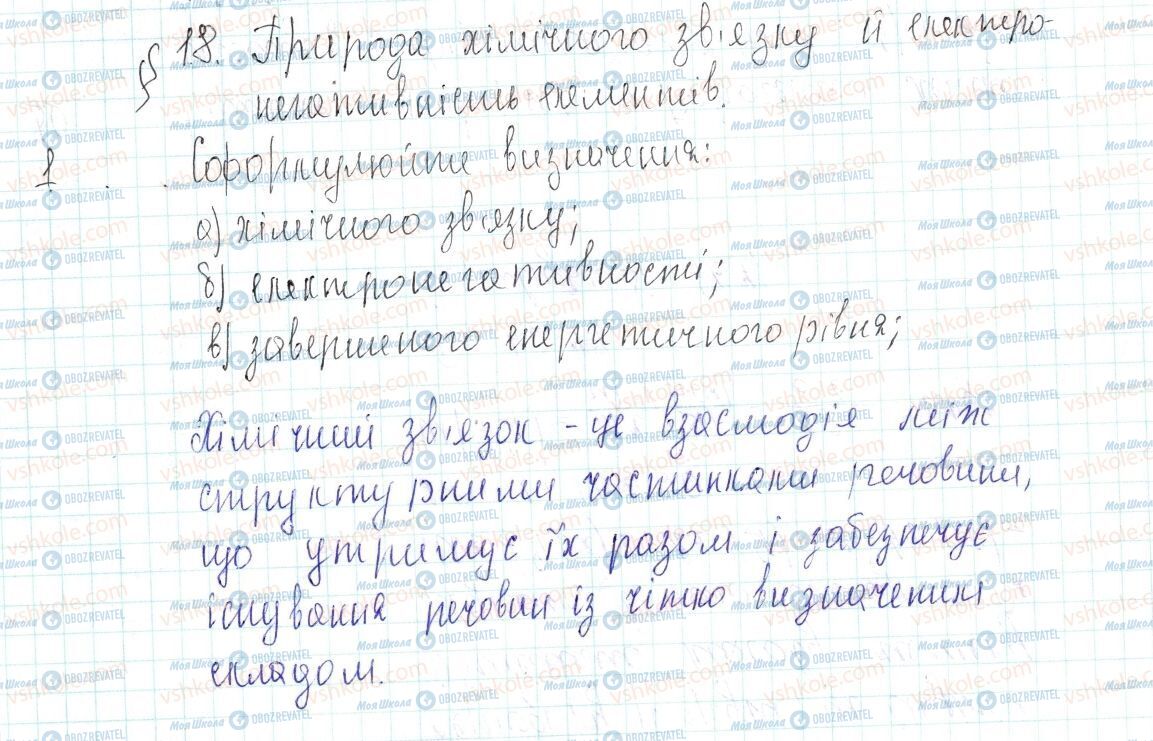 § 18. Природа хімічного зв'язку й електро-
негативність елементів.
1 Сформулюйте визначення:
а) хімічного зв'язку;
б) електронегативності;
в) завершеного енергетичного рівня;
Хімічний зв'язок - це взаємодія між
структурними частинками речовини,
що утримує їх разом і забезпечує
існування речовин із чітко визначеним
складом.